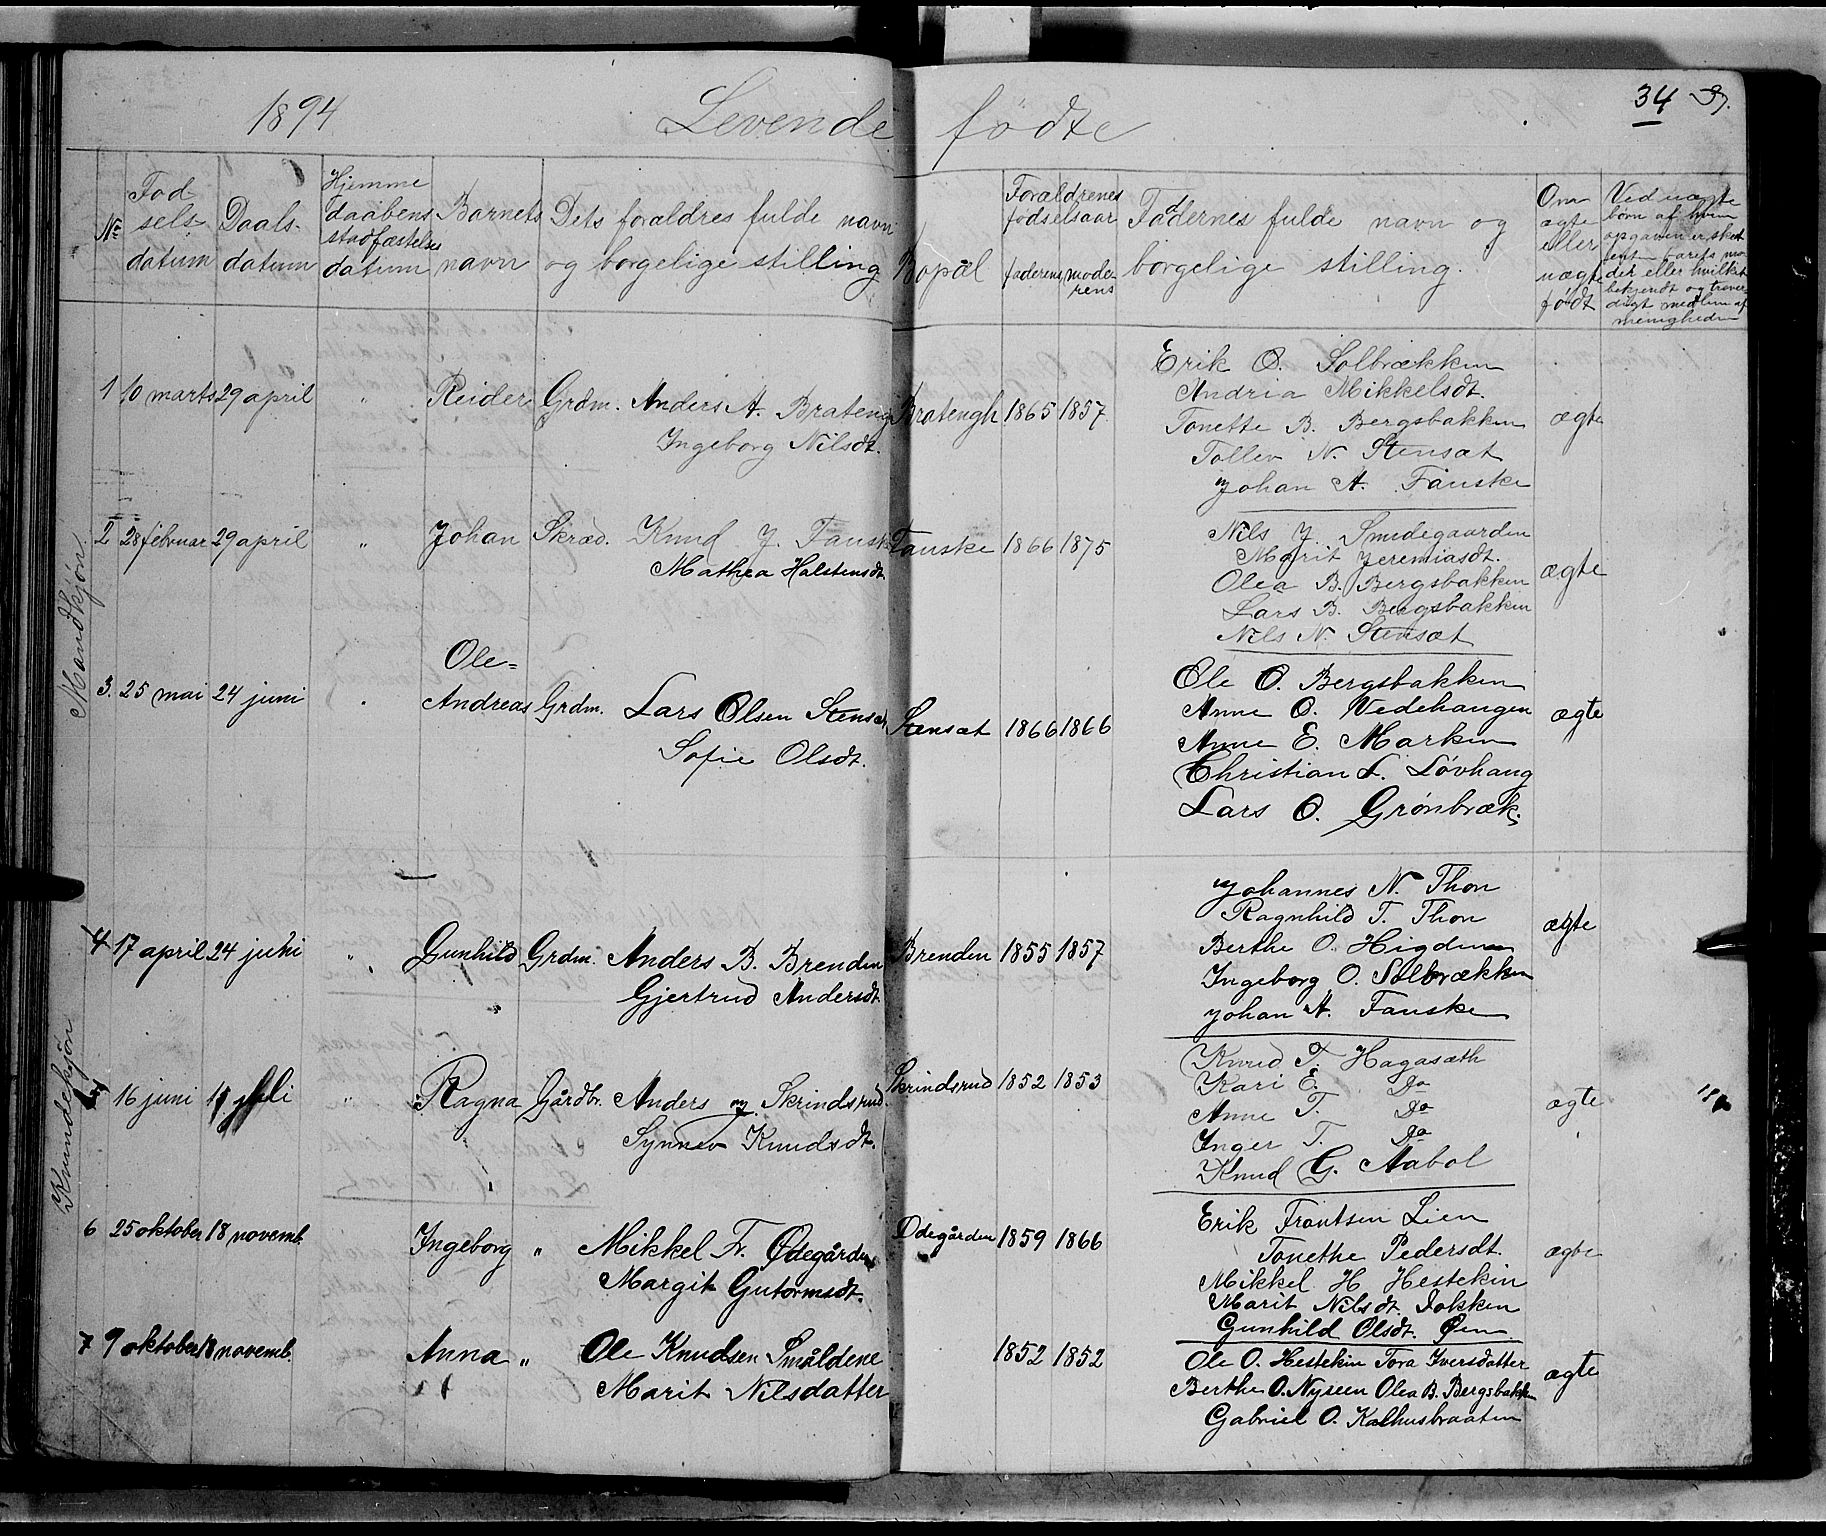 1894 Levende fødte 34
Nr Fødselsdatum Daabsdatum Hjemmedaabens stadfæstelses datum Barnets navn Dets forældres fulde navn og borgelige stilling Bopæl Forældrenes fødselsaar faderens moderens Faddernes fulde navn og borgelige stilling. Om ægte eller uægte født Ved uægte børn af hvem opgaven er skeet
menigheden
Mandkjøn
1 10 marts 29 april " Reider Grdm. Anders A. Brateng Bratengh 1865 1857 ægte
Ingeborg Nilsdt.
Erik O. Solbrækken
Andria Mikkelsdt.
Tonette B. Bergsbakken
Tollev N. Stensæt
Johan A. Fauske
2 28 februar 29 april " Johan Skræd. Knud J. Fausk Fauske 1866 1875 ægte
Mathea Halstensdt
Nils J. Smedegaarden
Marit Jeremiasdt.
Olea B. Bergsbakken
Lars B. Bergsbakken
Nils N. Stensæt
3. 25 mai 24 juni Ole=
Andreas Grdm. Lars Olsen Stensæt Stensæt 1866 1866 ægte
Sofie Olsdt.
Ole O. Bergsbakken
Anne O. Vedehaugen
Anne E. Marken
Christian L. Løvhaug
Lars O. Grønbræk.
Kvindekjøn
4 17 april 24 juni " Gunhild Grdm. Anders B. Brenden Brenden 1855 1857 ægte
Gjertrud Andersdt.
Johannes N. Thon
Ragnhild T. Thon
Berthe O. Higden
Ingeborg O. Solbrækken
Johan A. Fauske
16 juni juli " Ragna Gårdbr. Anders Skrindsrud Skrindsrud 1852 1853 ægte
Synnev Knudsdt.
Knud T. Hagasæth
Kari E. Do
Anne T. Do
Inger T. Do
Knud G. Aabol
6 25 oktober 18 novemb. Ingeborg " Mikkel Fr. Ødegården Ødegården 1859 1866 ægte
Margit Gutormsdt.
Erik Frantsen Lien
Tonethe Pedersdt.
Mikkel H Hestekin
Marit Nilsdt. Dokken
Gunhild Olsdt. Øen
7 9 oktober 18 novemb. Anna " Ole Knudsen Småldene 1852 1852 ægte
Marit Nilsdatter
Ole O. Hestekin Tora Iversdatter
Berthe O. Nyseen Olea B. Bergsbakken
Gabriel O. Kalhusbraaten